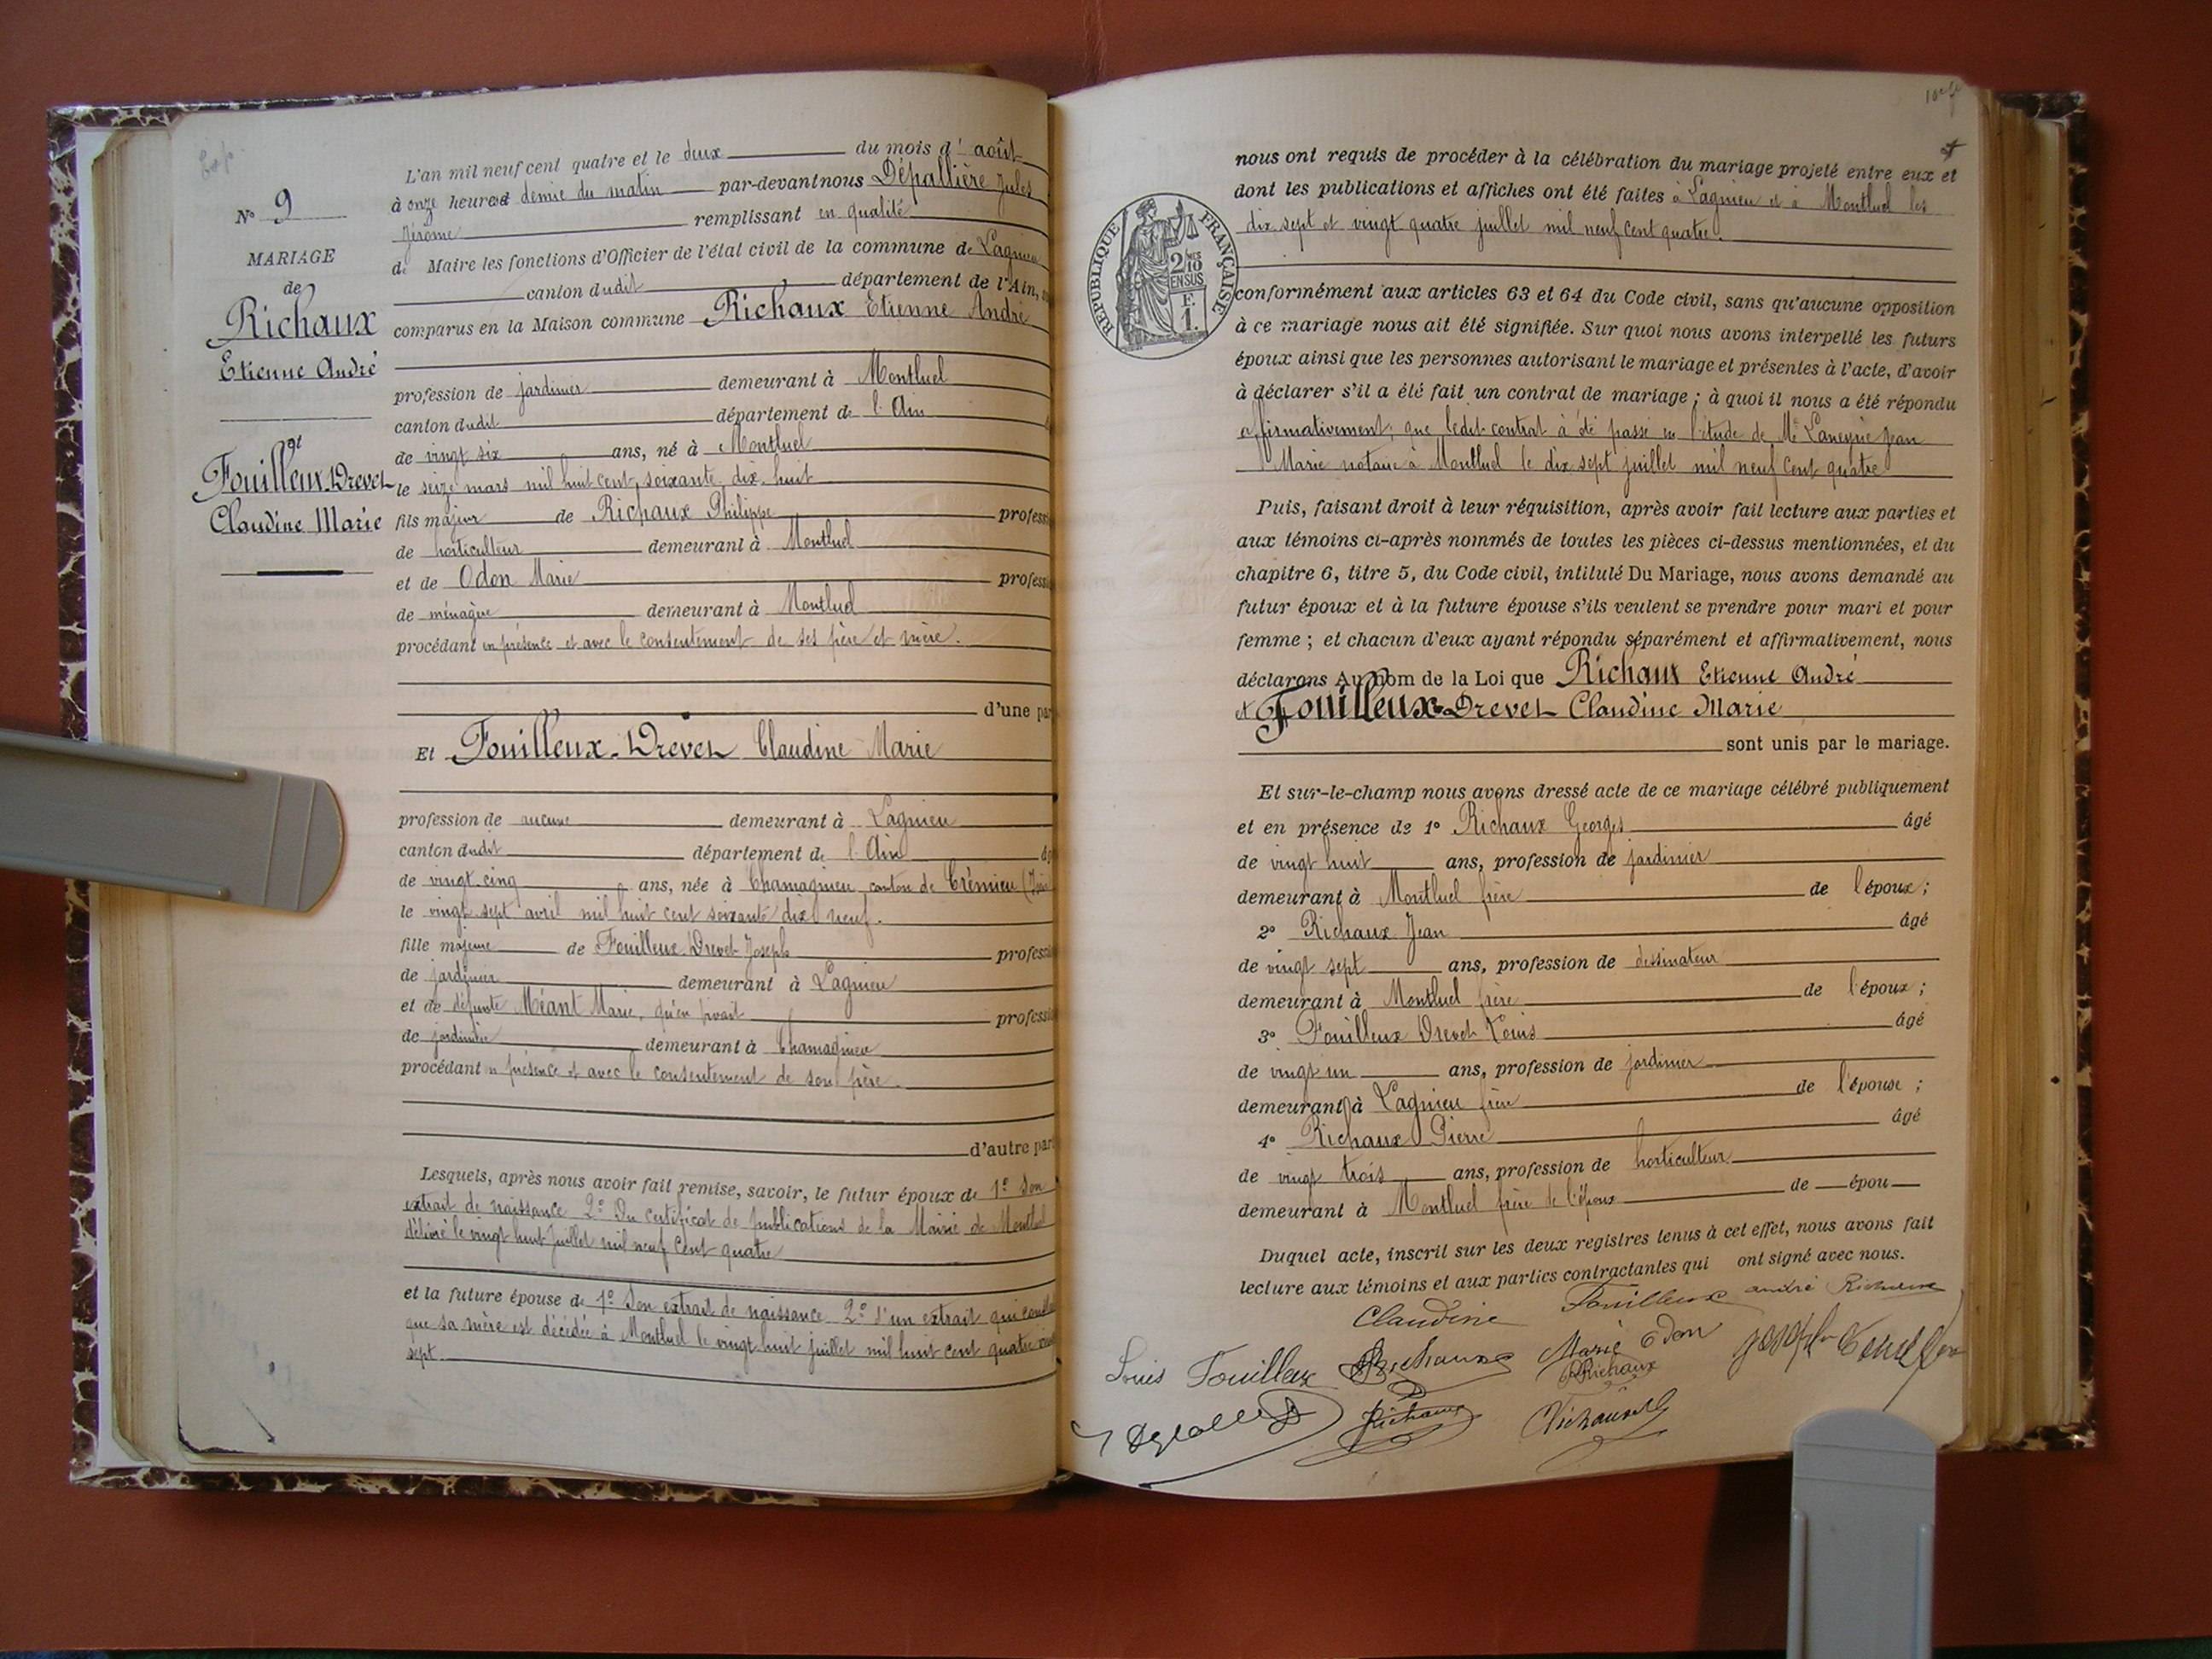 N° 9
MARIAGE
de
Richaux
Etienne André
et
Fouilleux-Drevet
Claudine Marie
L'an mil neuf cent quatre et le deux du mois d'août
à onze heures et demie du matin par-devant nous Dépallière Jules
Jérôme remplissant en qualité
de Maire les fonctions d'Officier de l'état civil de la commune de Lagnieu
canton dudit département de l'Ain,
comparus en la Maison commune Richaux Etienne André
profession de jardinier demeurant à Montluel
canton dudit département de l'Ain
de vingt six ans, né à Montluel
le seize mars mil huit cent soixante dix-huit
fils majeur de Richaux Philippe professi
de horticulteur demeurant à Montluel
et de Odon Marie professi
de ménagère demeurant à Montluel
procédant en présence et avec le consentement de ses père et mère.
d'une par
Et Fouilleux-Drevet Claudine Marie
profession de aucune demeurant à Lagnieu
canton dudit département de l'Ain
de vingt-cinq ans, née à Chamagnieu canton de Crémieu
le vingt-sept avril mil huit cent soixante dix neuf.
fille majeure de Fouilleux-Drevet Joseph professi
de jardinier demeurant à Lagnieu
et de défunte Méant Marie, qu'en vivait professi
de jardinière demeurant à Chamagnieu
procédant en présence et avec le consentement de son père.
d'autre par
Lesquels, après nous avoir fait remise, savoir, le futur époux de 1° Son
extrait de naissance 2° Du certificat de publications de la Mairie de Montluel
délivré le vingt huit Juillet mil neuf cent quatre
et la future épouse de 1° Son extrait de naissance 2° d'un extrait qui
que sa mère est décédée à Montluel le vingt huit juillet mil huit cent quatre
sept
nous ont requis de procéder à la célébration du mariage projeté entre eux et
dont les publications et affiches ont été faites à Lagnieu et à Montluel les
dix sept et vingt quatre juillet mil neuf cent quatre.
RÉPUBLIQUE FRANÇAISE
2/10
EN SUS
F.
1.
conformément aux articles 63 et 64 du Code civil, sans qu'aucune opposition
à ce mariage nous ait été signifiée. Sur quoi nous avons interpellé les futurs
époux ainsi que les personnes autorisant le mariage et présentes à l'acte, d'avoir
à déclarer s'il a été fait un contrat de mariage ; à quoi il nous a été répondu
affirmativement, que ledit contrat à été passé en l'étude de Me Laneyrie Jean
Marie notaire à Montluel le dix sept juillet mil neuf cent quatre
Puis, faisant droit à leur réquisition, après avoir fait lecture aux parties et
aux témoins ci-après nommés de toutes les pièces ci-dessus mentionnées, et du
chapitre 6, titre 5, du Code civil, intitulé Du Mariage, nous avons demandé au
futur époux et à la future épouse s'ils veulent se prendre pour mari et pour
femme ; et chacun d'eux ayant répondu séparément et affirmativement, nous
déclarons Au nom de la Loi que Richaux Etienne André
et Fouilleux-Drevet Claudine Marie
sont unis par le mariage.
Et sur-le-champ nous avons dressé acte de ce mariage célébré publiquement
et en présence de 1° Richaux Georges âgé
de vingt huit ans, profession de jardinier
demeurant à Montluel frère de l'époux ;
2° Richaux Jean âgé
de vingt sept ans, profession de dessinateur
demeurant à Montluel frère de l'époux ;
3° Fouilleux Drevet Louis âgé
de vingt un ans, profession de jardinier
demeurant à Lagnieu frère de l'épouse ;
4° Richaux Pierre âgé
de vingt trois ans, profession de horticulteur
demeurant à Montluel frère de l'époux de épou
Duquel acte, inscrit sur les deux registres tenus à cet effet, nous avons fait
lecture aux témoins et aux parties contractantes qui ont signé avec nous.
Claudine Fouilleux andré Richaux
Louis Fouilleux Richaux Marie Odon Joseph Fouilleux
Richaux
Richaux